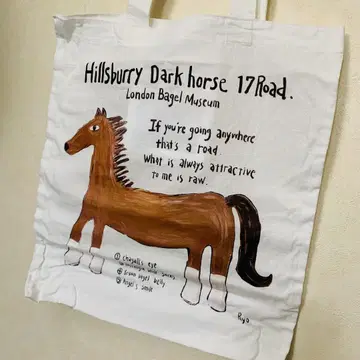 Hillsburry Dark horse 17Road.
London Bagel Museum
If you're going anywhere
that's a road.
What is always attractive
to me is raw.
① chagall's eye
③ brown bagel belly
④ Angel's smile
Ryo